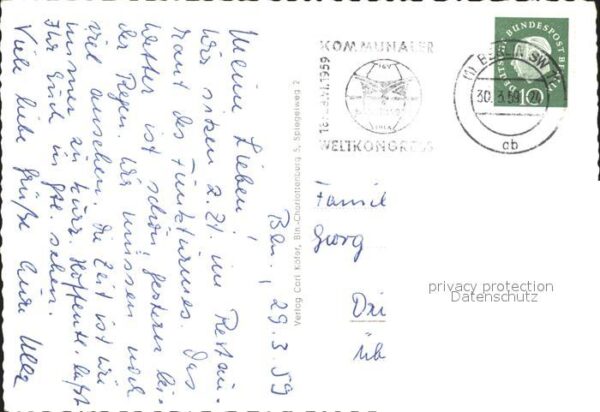 Bln., 29.3.59
Meine Lieben!
Wir sitzen z.Zt. im Restau-
rant des Funkturmes. Das
Wetter ist schön, gestern lei-
der Regen. Wir müssen noch
viel ansehen, die Zeit ist wie
immer zu kurz. Hoffentl. läßt
Ihr Euch in sehen.
Viele liebe Grüße Eure
Verlag Carl Köfer, Bln.-Charlottenburg 5, Spiegelweg 2
KOMMUNALER
WELTKONGRESS
1959
IGV
(1) BERLIN SW 11
30.3.59
ab
DEUTSCHE BUNDESPOST BERLIN
10
Famil
Georg
Dri
Üb
privacy protection
Datenschutz